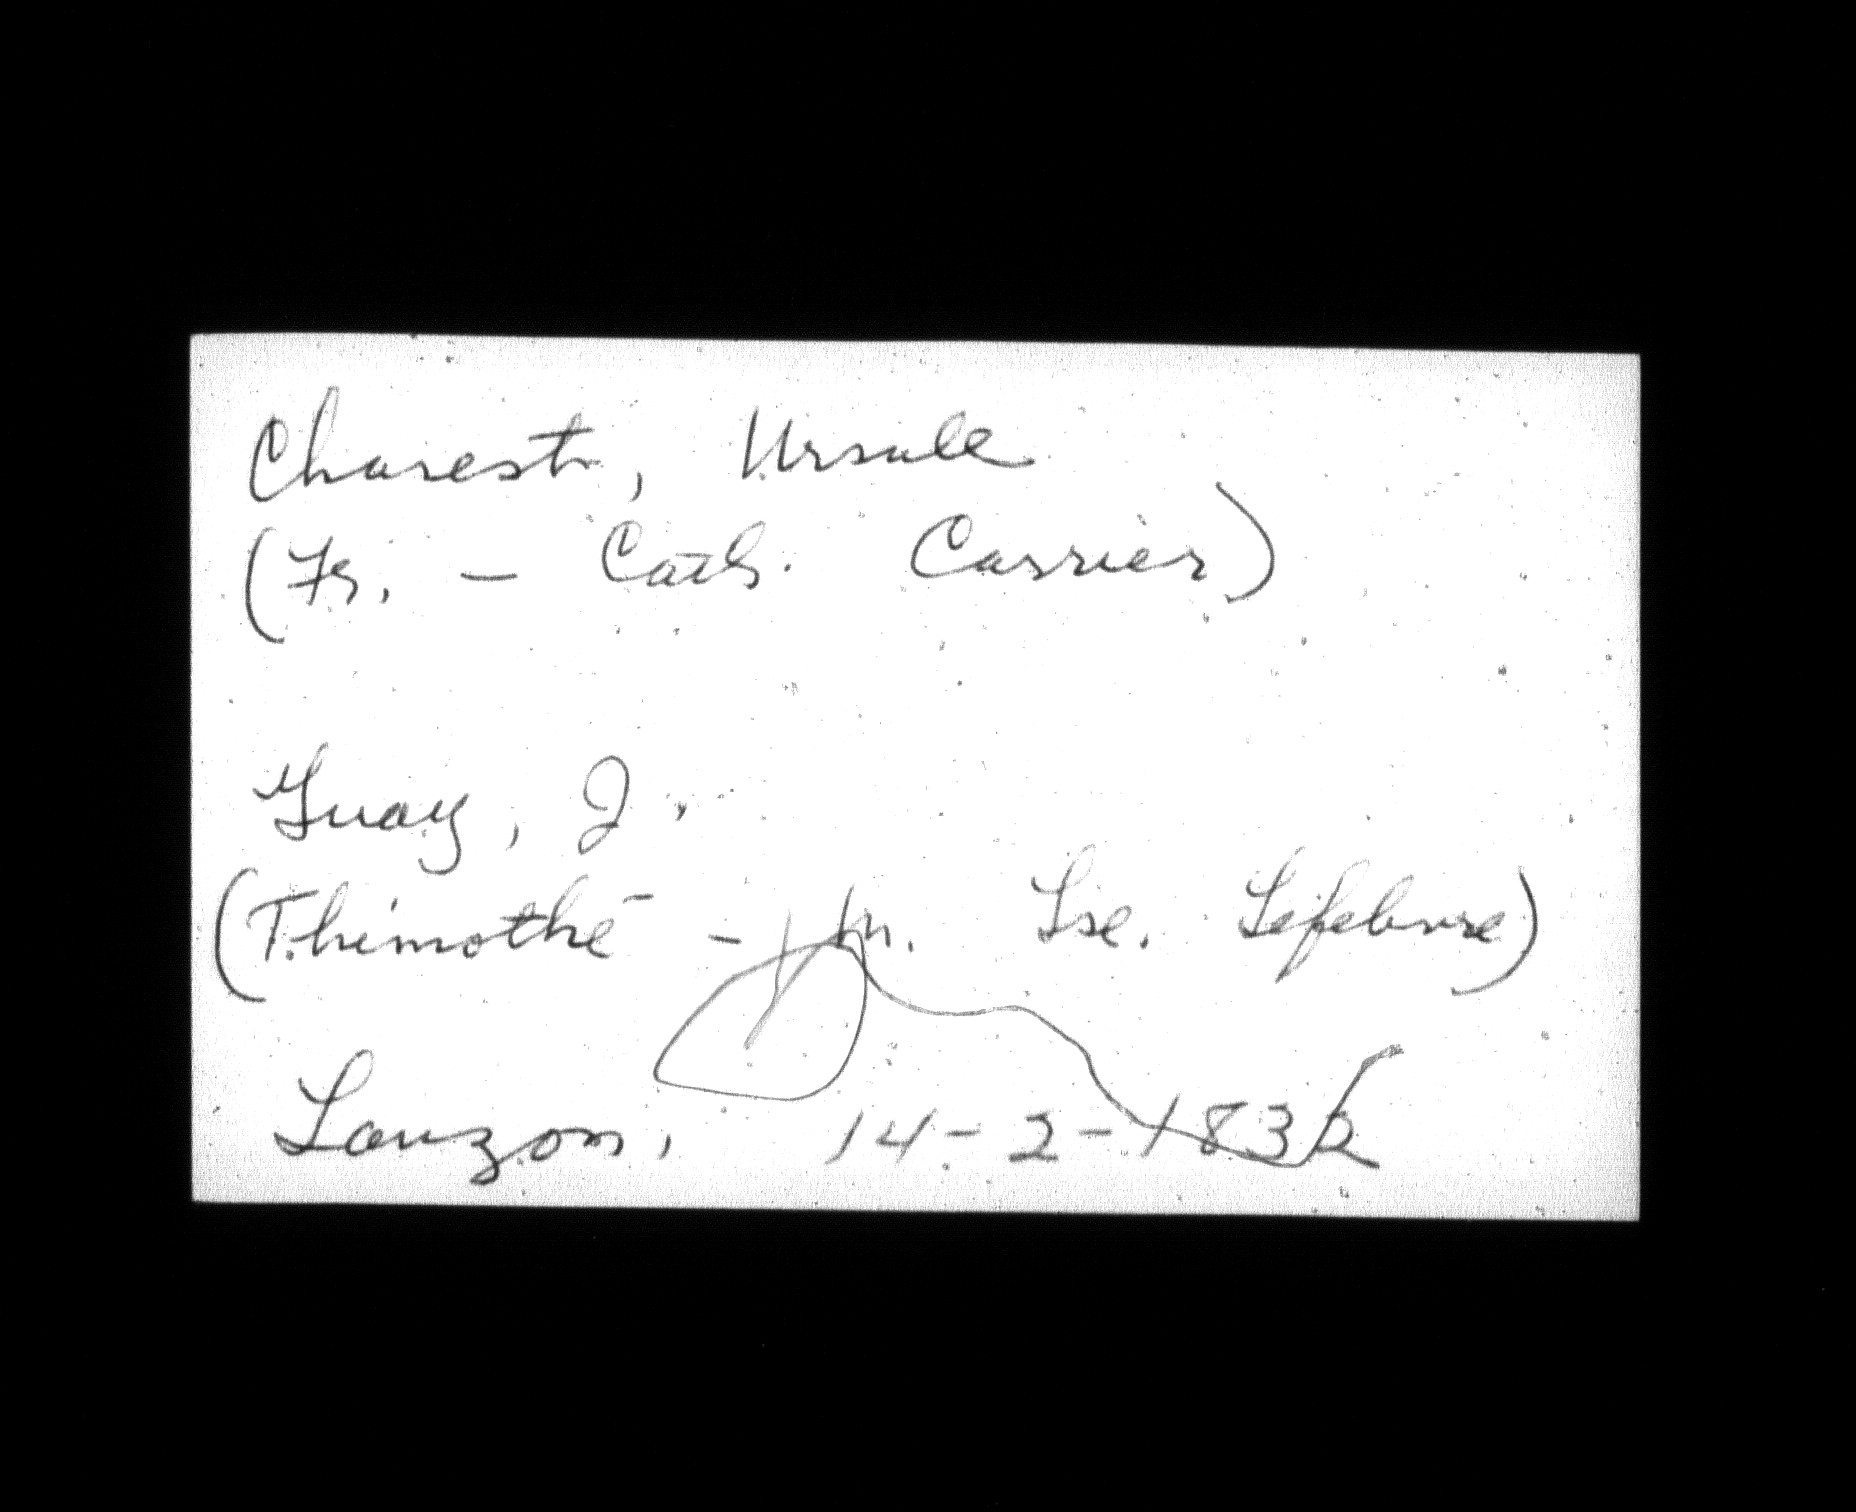 Charest, Ursule
(Fr. - Cath. Carrier)
Guay, J.
(Thimothé - M. Lse. Lefebvre)
Lauzon, 14-2-1832